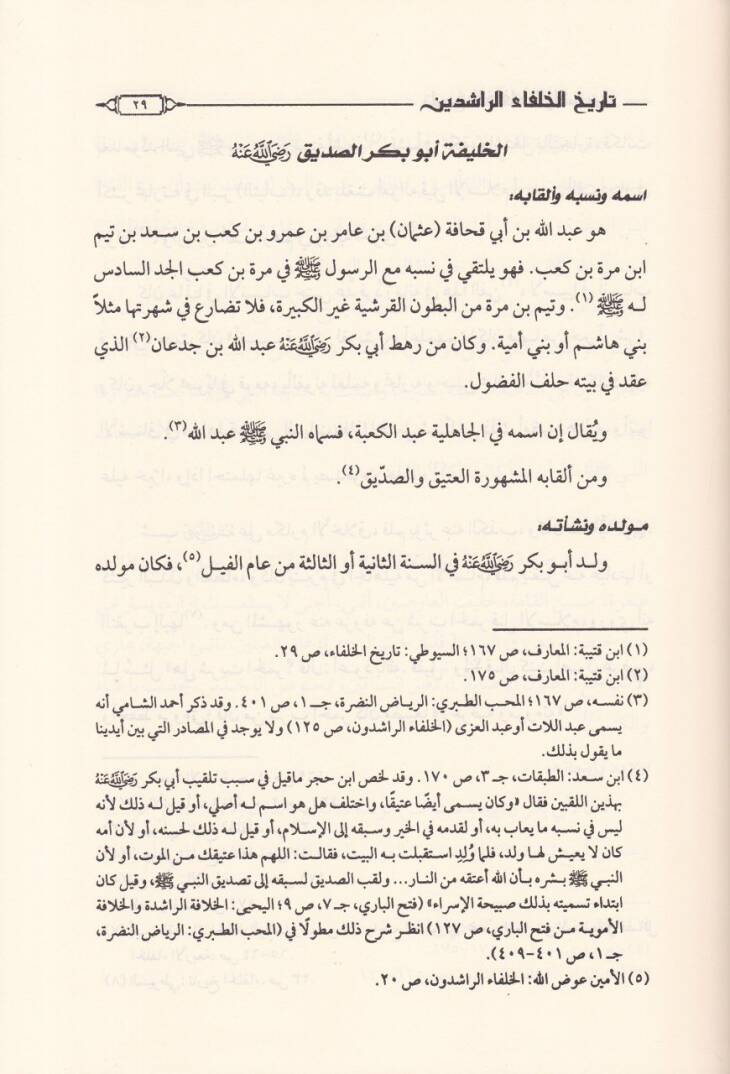 تاريخ الخلفاء الراشدين
٢٩
الخليفة أبو بكر الصديق رَضِيَ اللَّهُ عَنْهُ
اسمه ونسبه وألقابه:
هو عبد الله بن أبي قحافة (عثمان) بن عامر بن عمرو بن كعب بن سعد بن تيم
ابن مرة بن كعب. فهو يلتقي في نسبه مع الرسول ﷺ في مرة بن كعب الجد السادس
له ﷺ (١). وتيم بن مرة من البطون القرشية غير الكبيرة، فلا تضارع في شهرتها مثلاً
بني هاشم أو بني أمية. وكان من رهط أبي بكر رَضِيَ اللَّهُ عَنْهُ عبد الله بن جدعان(٢) الذي
عقد في بيته حلف الفضول.
ويُقال إن اسمه في الجاهلية عبد الكعبة، فسماه النبي ﷺ عبد الله(٣).
ومن ألقابه المشهورة العتيق والصدّيق(٤).
مولده ونشأته:
ولد أبو بكر رَضِيَ اللَّهُ عَنْهُ في السنة الثانية أو الثالثة من عام الفيل(٥)، فكان مولده
(١) ابن قتيبة: المعارف، ص ١٦٧؛ السيوطي: تاريخ الخلفاء، ص ٢٩.
(٢) ابن قتيبة: المعارف، ص ١٧٥.
(٣) نفسه، ص ١٦٧؛ المحب الطبري: الرياض النضرة، جـ ١، ص ٤٠١. وقد ذكر أحمد الشامي أنه
يسمى عبد اللات أوعبد العزى (الخلفاء الراشدون، ص ١٢٥) ولا يوجد في المصادر التي بين أيدينا
ما يقول بذلك.
(٤) ابن سعد: الطبقات، جـ ٣، ص ١٧٠. وقد لخص ابن حجر ماقيل في سبب تلقيب أبي بكر رَضِيَ اللَّهُ عَنْهُ
بهذين اللقبين فقال «وكان يسمى أيضًا عتيقًا، واختلف هل هو اسم له أصلي، أو قيل له ذلك لأنه
ليس في نسبه ما يعاب به، أو لقدمه في الخير وسبقه إلى الإسلام، أو قيل له ذلك لحسنه، أو لأن أمه
كان لا يعيش لها ولد، فلما وُلِد استقبلت به البيت، فقالت: اللهم هذا عتيقك من الموت، أو لأن
النبي ﷺ بشره بأن الله أعتقه من النار... ولقب الصديق لسبقه إلى تصديق النبي ﷺ، وقيل كان
ابتداء تسميته بذلك صبيحة الإسراء» (فتح الباري، جـ ٧، ص ٩؛ اليحيى: الخلافة الراشدة والخلافة
الأموية من فتح الباري، ص ١٢٧) انظر شرح ذلك مطولًا في (المحب الطبري: الرياض النضرة،
جـ ١، ص ٤٠١-٤٠٩).
(٥) الأمين عوض الله: الخلفاء الراشدون، ص ٢٠.